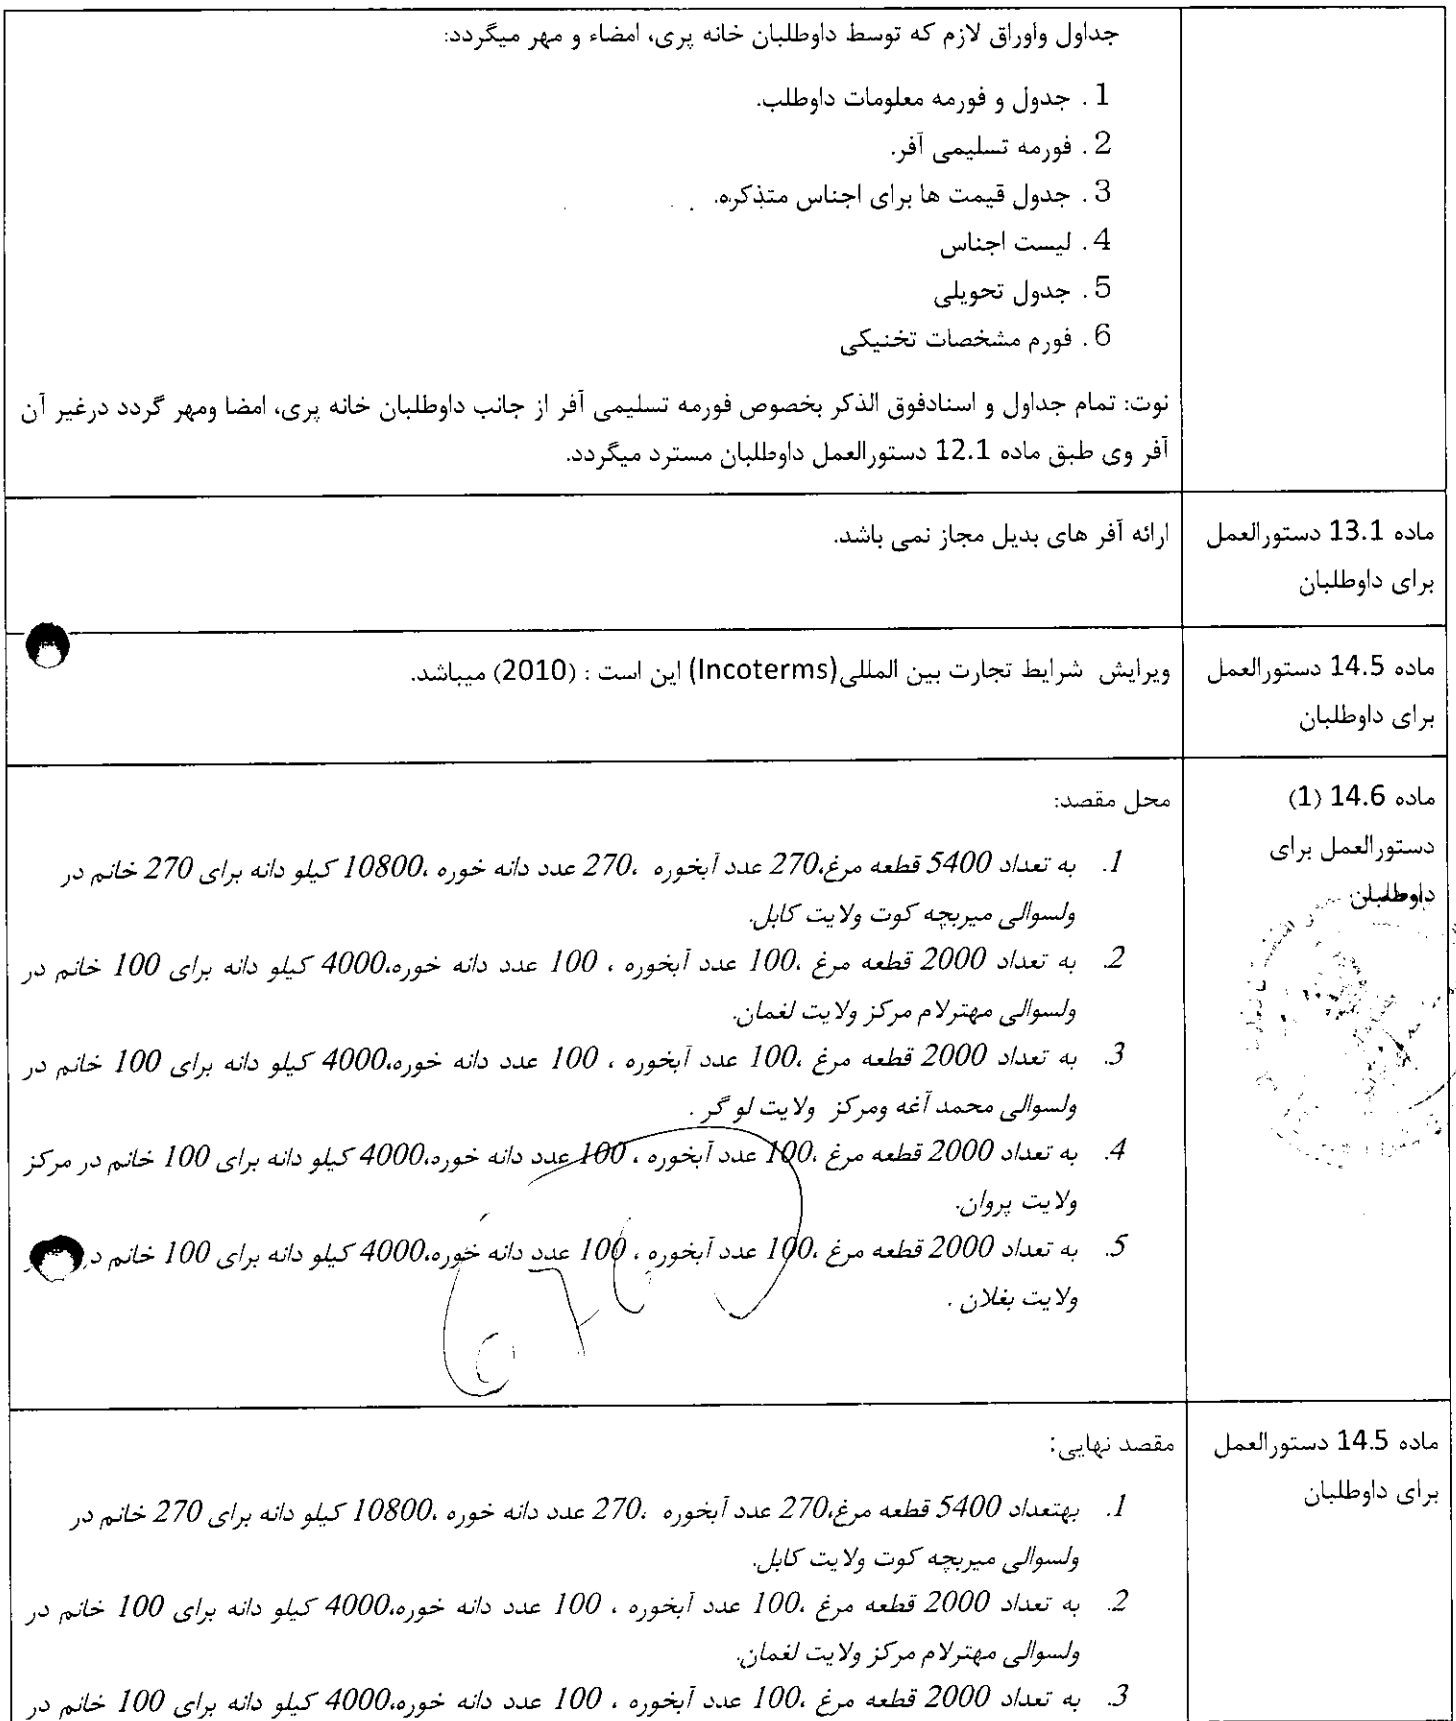 جداول واوراق لازم که توسط داوطلبان خانه پری، امضاء و مهر میگردد:
1. جدول و فورمه معلومات داوطلب.
2. فورمه تسلیمی آفر.
3. جدول قیمت ها برای اجناس متذکره.
4. لیست اجناس
5. جدول تحویلی
6. فورم مشخصات تخنیکی
نوت: تمام جداول و اسنادفوق الذکر بخصوص فورمه تسلیمی آفر از جانب داوطلبان خانه پری، امضا ومهر گردد درغیر آن
آفر وی طبق ماده 12.1 دستورالعمل داوطلبان مسترد میگردد.
ماده 13.1 دستورالعمل
برای داوطلبان
ارائه آفر های بدیل مجاز نمی باشد.
ماده 14.5 دستورالعمل
برای داوطلبان
ویرایش شرایط تجارت بین المللی(Incoterms) این است : (2010) میباشد.
ماده 14.6 (1)
دستورالعمل برای
داوطلبان
محل مقصد:
1. به تعداد 5400 قطعه مرغ،270 عدد آبخوره ،270 عدد دانه خوره ،10800 کیلو دانه برای 270 خانم در
ولسوالی میربچه کوت ولایت کابل.
2. به تعداد 2000 قطعه مرغ ،100 عدد آبخوره ، 100 عدد دانه خوره،4000 کیلو دانه برای 100 خانم در
ولسوالی مهترلام مرکز ولایت لغمان.
3. به تعداد 2000 قطعه مرغ ،100 عدد آبخوره ، 100 عدد دانه خوره،4000 کیلو دانه برای 100 خانم در
ولسوالی محمد آغه ومرکز ولایت لو گر .
4. به تعداد 2000 قطعه مرغ ،100 عدد آبخوره ، 100 عدد دانه خوره،4000 کیلو دانه برای 100 خانم در مرکز
ولایت پروان.
5. به تعداد 2000 قطعه مرغ ،100 عدد آبخوره ، 100 عدد دانه خوره،4000 کیلو دانه برای 100 خانم در
ولایت بغلان .
ماده 14.5 دستورالعمل
برای داوطلبان
مقصد نهایی:
1. بهتعداد 5400 قطعه مرغ،270 عدد آبخوره ،270 عدد دانه خوره ،10800 کیلو دانه برای 270 خانم در
ولسوالی میربچه کوت ولایت کابل.
2. به تعداد 2000 قطعه مرغ ،100 عدد آبخوره ، 100 عدد دانه خوره،4000 کیلو دانه برای 100 خانم در
ولسوالی مهترلام مرکز ولایت لغمان.
3. به تعداد 2000 قطعه مرغ ،100 عدد آبخوره ، 100 عدد دانه خوره،4000 کیلو دانه برای 100 خانم در